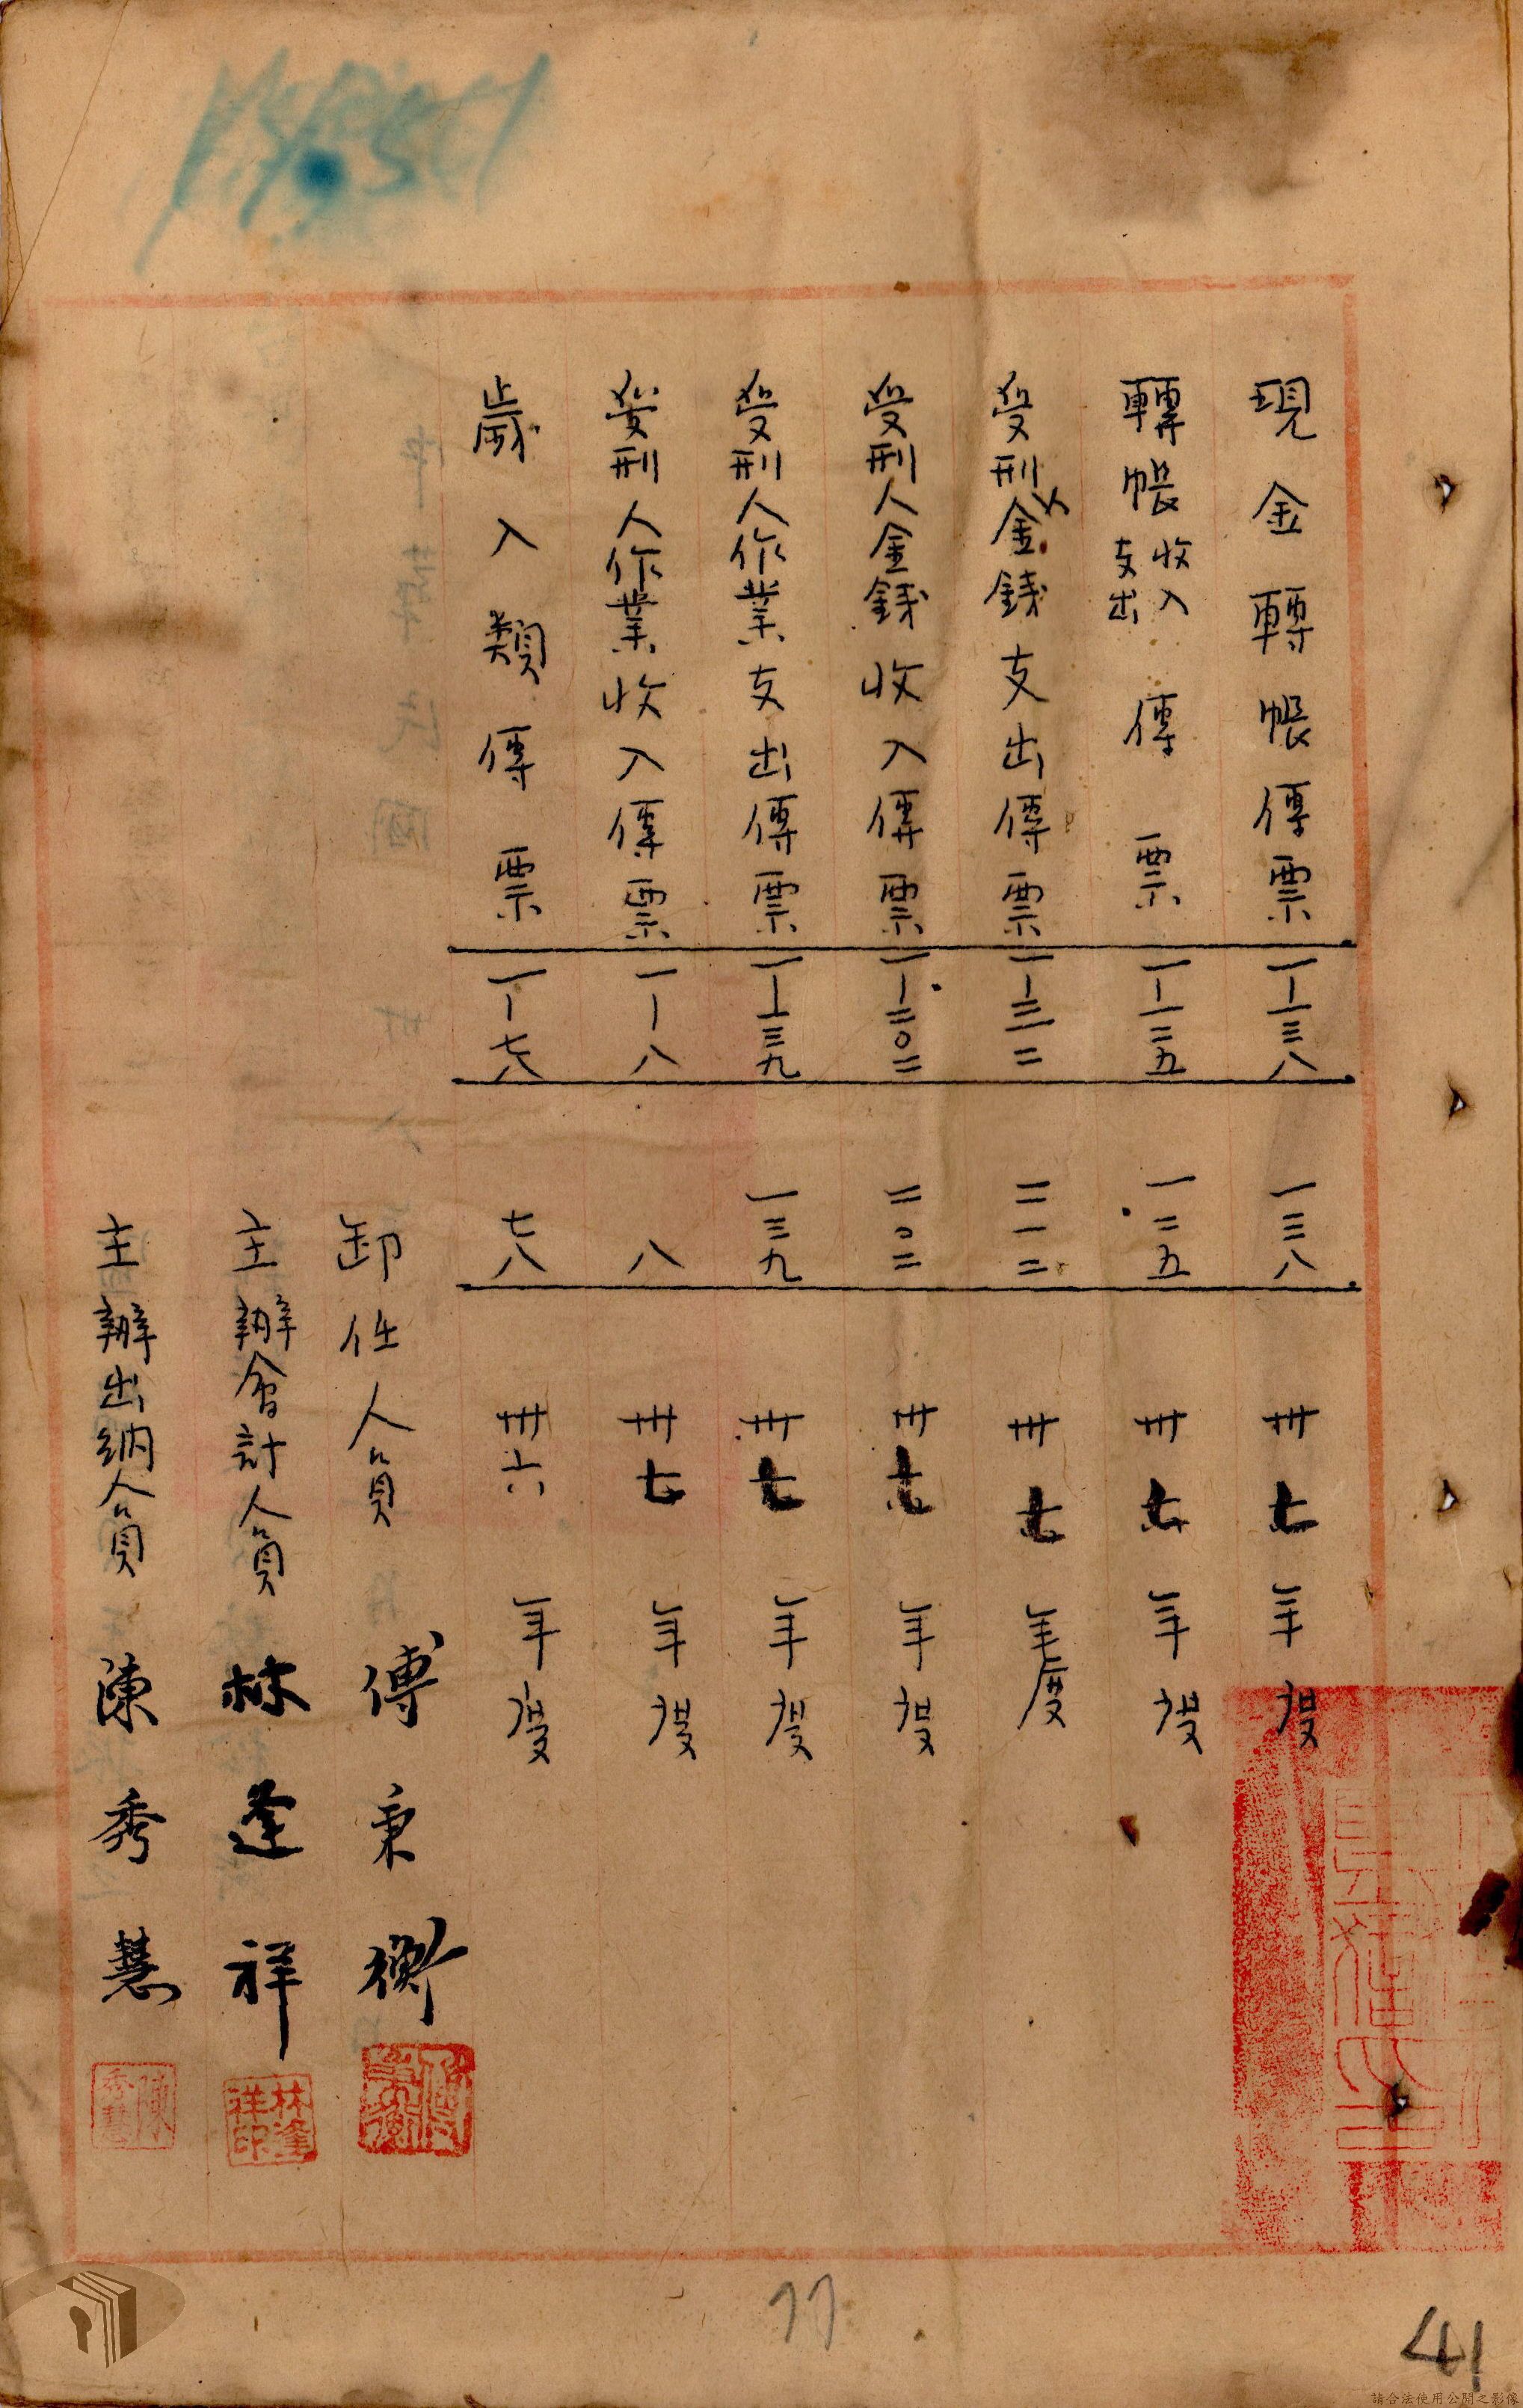 現金轉帳傳票 一－一三八 一三八 卅七年度
轉帳收入支出傳票 一－一二五 一二五 卅七年度
受刑人金錢支出傳票 二一二 卅七年度
受刑人金錢收入傳票 一－二〇二 二〇二 卅七年度
受刑人作業支出傳票 一－一三九 一三九 卅七年度
受刑人作業收入傳票 一－八 八 卅七年度
歲入類傳票 一－七八 七八 卅六年度
卸任人員 傅秉衡
主辦會計人員 林逢祥
林逢祥印
主辦出納人員 陳秀慧
陳秀慧
77
41
請合法使用公開之影像